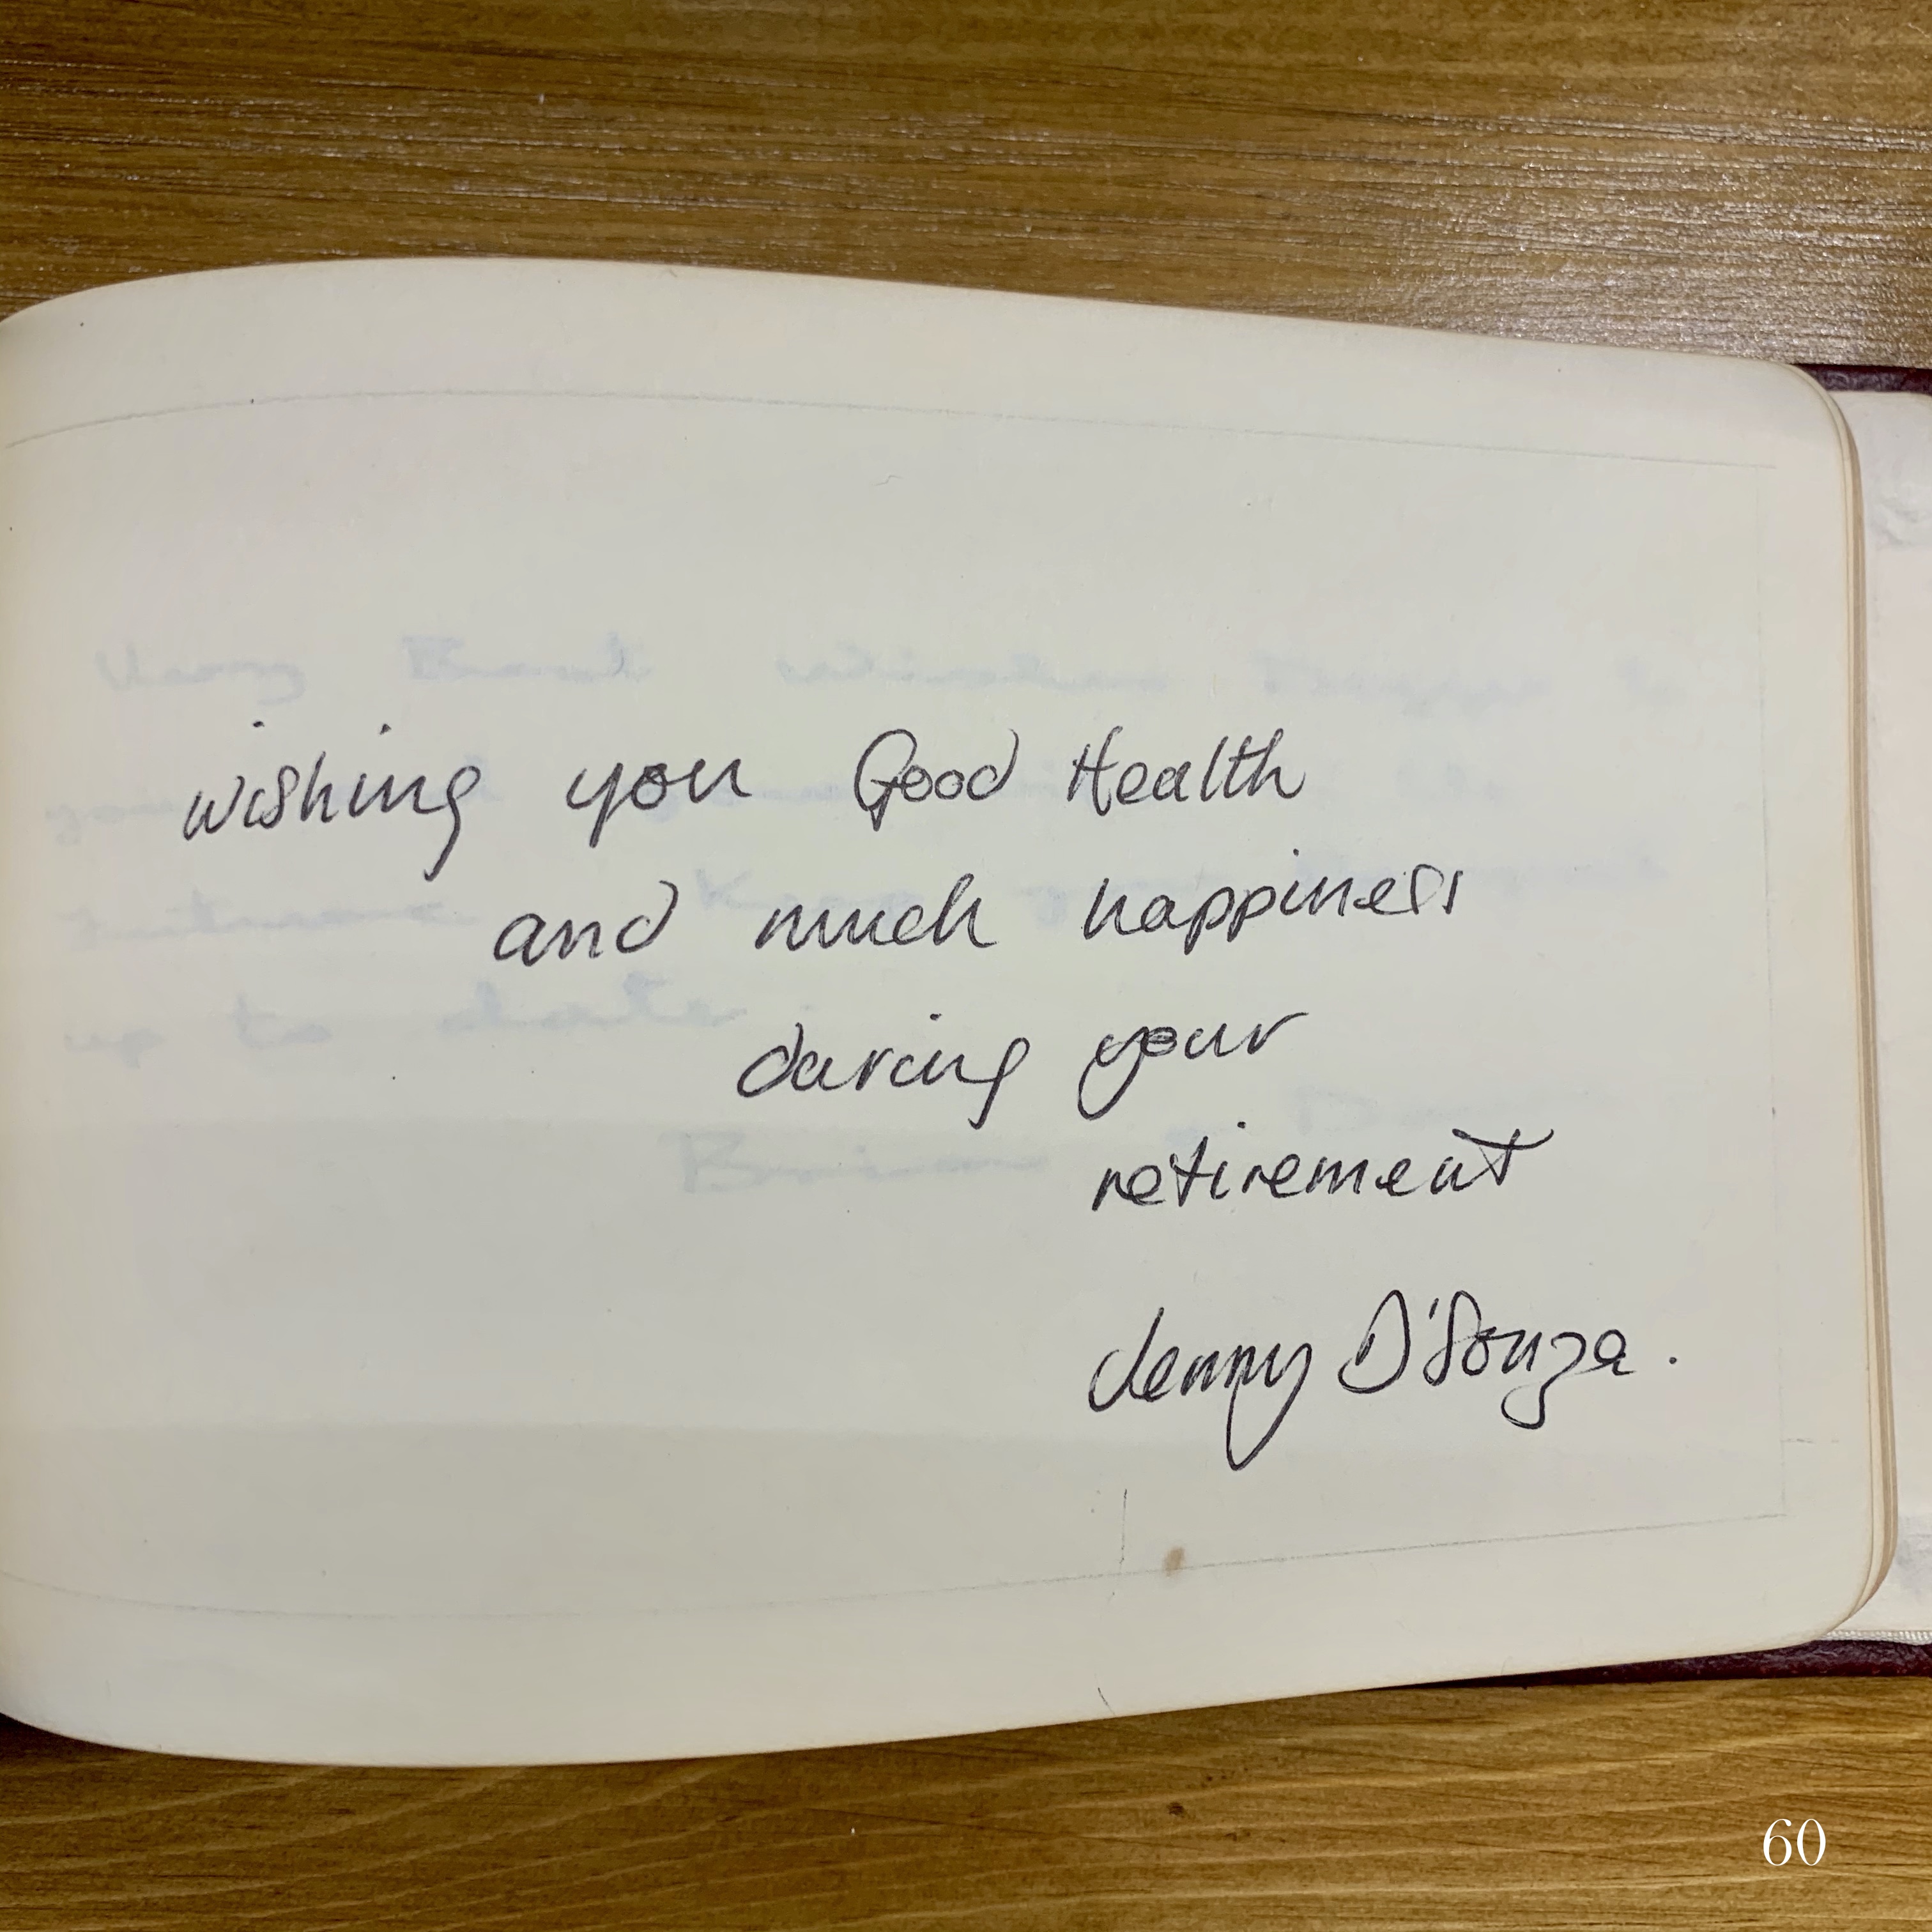 wishing you Good Health
and much happiness
during your
retirement
Jenny D'Souza.
up to date.
60